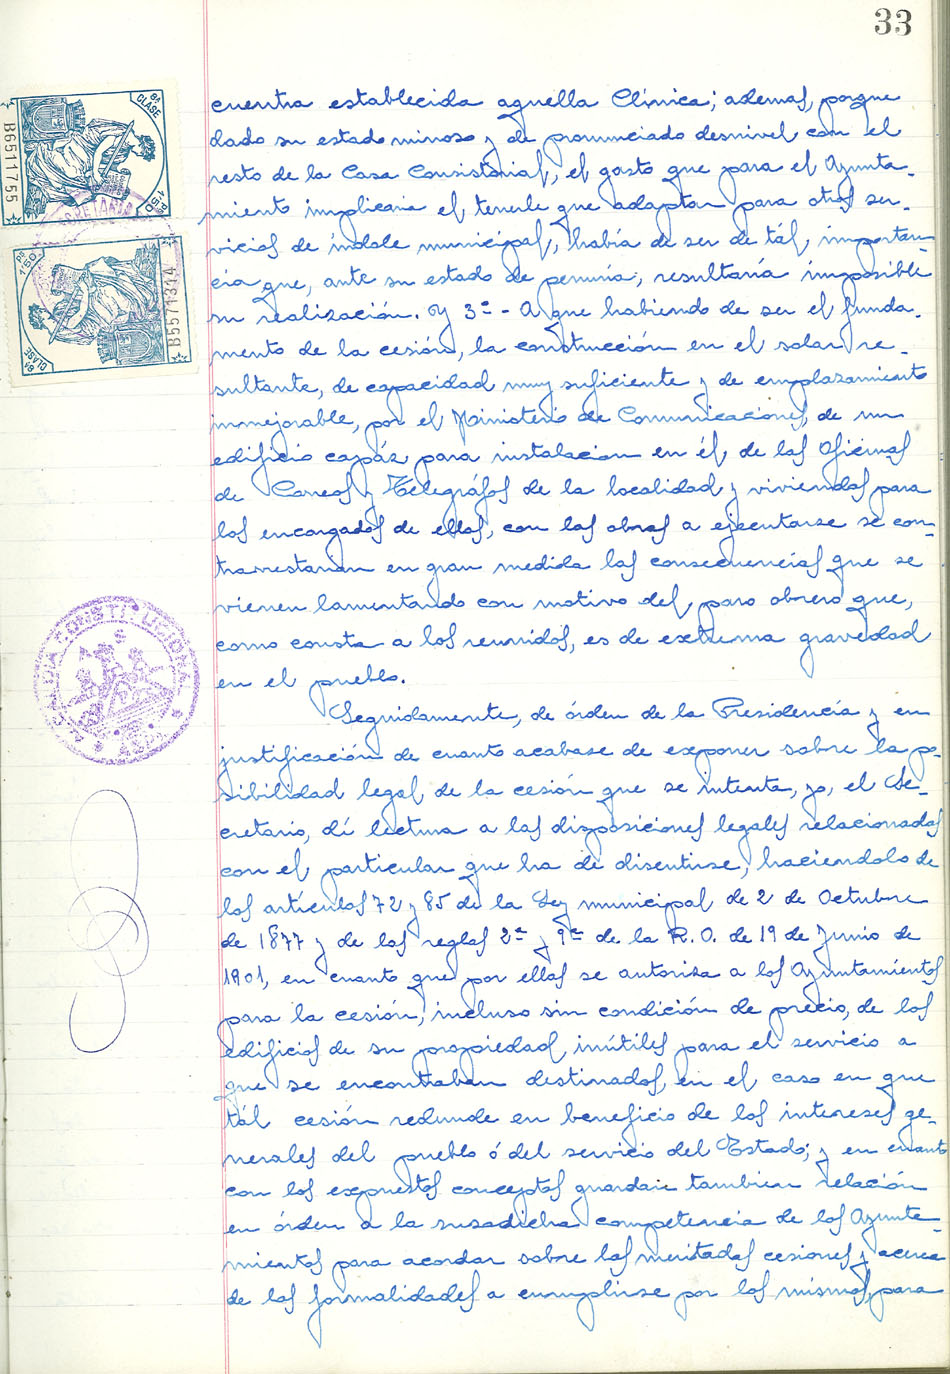 33
8ª CLASE
1'50 Pts
B6511755
SECRETARIA
Pts 1'50
8ª CLASE
B5571314
ALCALDIA CONSTITUCIONAL
ASPE
cuentra establecida aquella Clínica; además, porque
dado su estado ruinoso y de pronunciado desnivel con el
resto de la Casa Consistorial, el gasto que para el Ayunta-
miento implicaria el tenerle que adaptar para otros ser-
vicios de índole municipal, había de ser de tál, importan-
cia que, ante su estado de penuria, resultaría imposible
su realización. Y 3º - A que habiendo de ser el funda-
mento de la cesión, la construcción en el solar re-
sultante, de capacidad muy suficiente y de emplazamiento
inmejorable, por el Ministerio de Comunicaciones, de un
edificio capáz para instalacion en él de las Oficinas
de Correos y Telegráfos de la localidad y viviendas para
los encargados de ellas, con las obras a ejecutarse se con-
trarrestarian en gran medida las consecuencias que se
vienen lamentando con motivo del paro obrero que,
como consta a los reunidos, es de extrema gravedad
en el pueblo.
Seguidamente, de órden de la Presidencia y en
justificación de cuanto acabase de exponer sobre la po-
sibilidad legal de la cesión que se intenta, yo, el Se-
cretario, dí lectura a las disposiciones legales relacionadas
con el particular que ha de discutirse, haciendolo de
los artículos 72 y 85 de la Ley municipal de 2 de Octubre
de 1877 y de las reglas 2ª y 9ª de la R.O. de 19 de Junio de
1901, en cuanto que por ellas se autoriza a los Ayuntamientos
para la cesión, incluso sin condición de precio, de los
edificios de su propiedad inútiles para el servicio a
que se encontraban destinados, en el caso en que
tál cesión redunde en beneficio de los intereses ge-
nerales del pueblo ó del servicio del Estado; y en cuanto
con los expuestos conceptos guardan tambien relación
en órden a la susodicha competencia de los Ayunta-
mientos para acordar sobre las meritadas cesiones y acerca
de las formalidades a cumplirse por los mismos, para